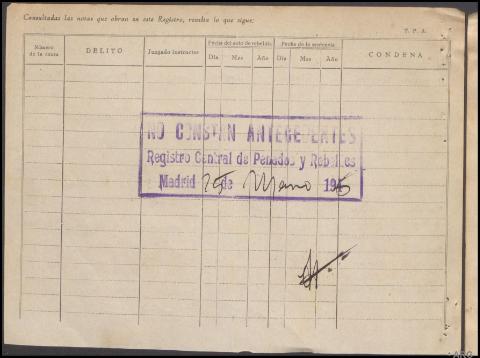 Consultadas las notas que obran en este Registro, resulta lo que sigue:
P. P. A.
Número de la causa
DELITO
Juzgado instructor
Fecha del auto de rebeldía
Día Mes Año
Fecha de la sentencia
Día Mes Año
CONDENA
NO CONSTAN ANTECEDENTES
Registro Central de Penados y Rebeldes
Madrid 25 de Mayo 194